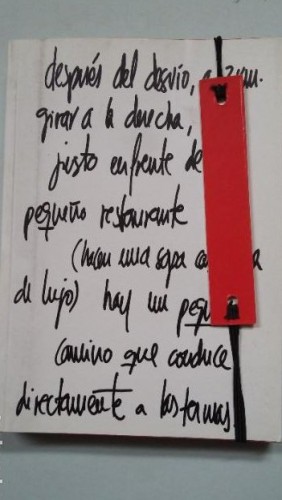 después del desvío, a 2 km.
girar a la derecha,
justo enfrente de
pequeño restaurante
(hacen una sopa
de lujo) hay un pequ
camino que conduce
directamente a las termas.